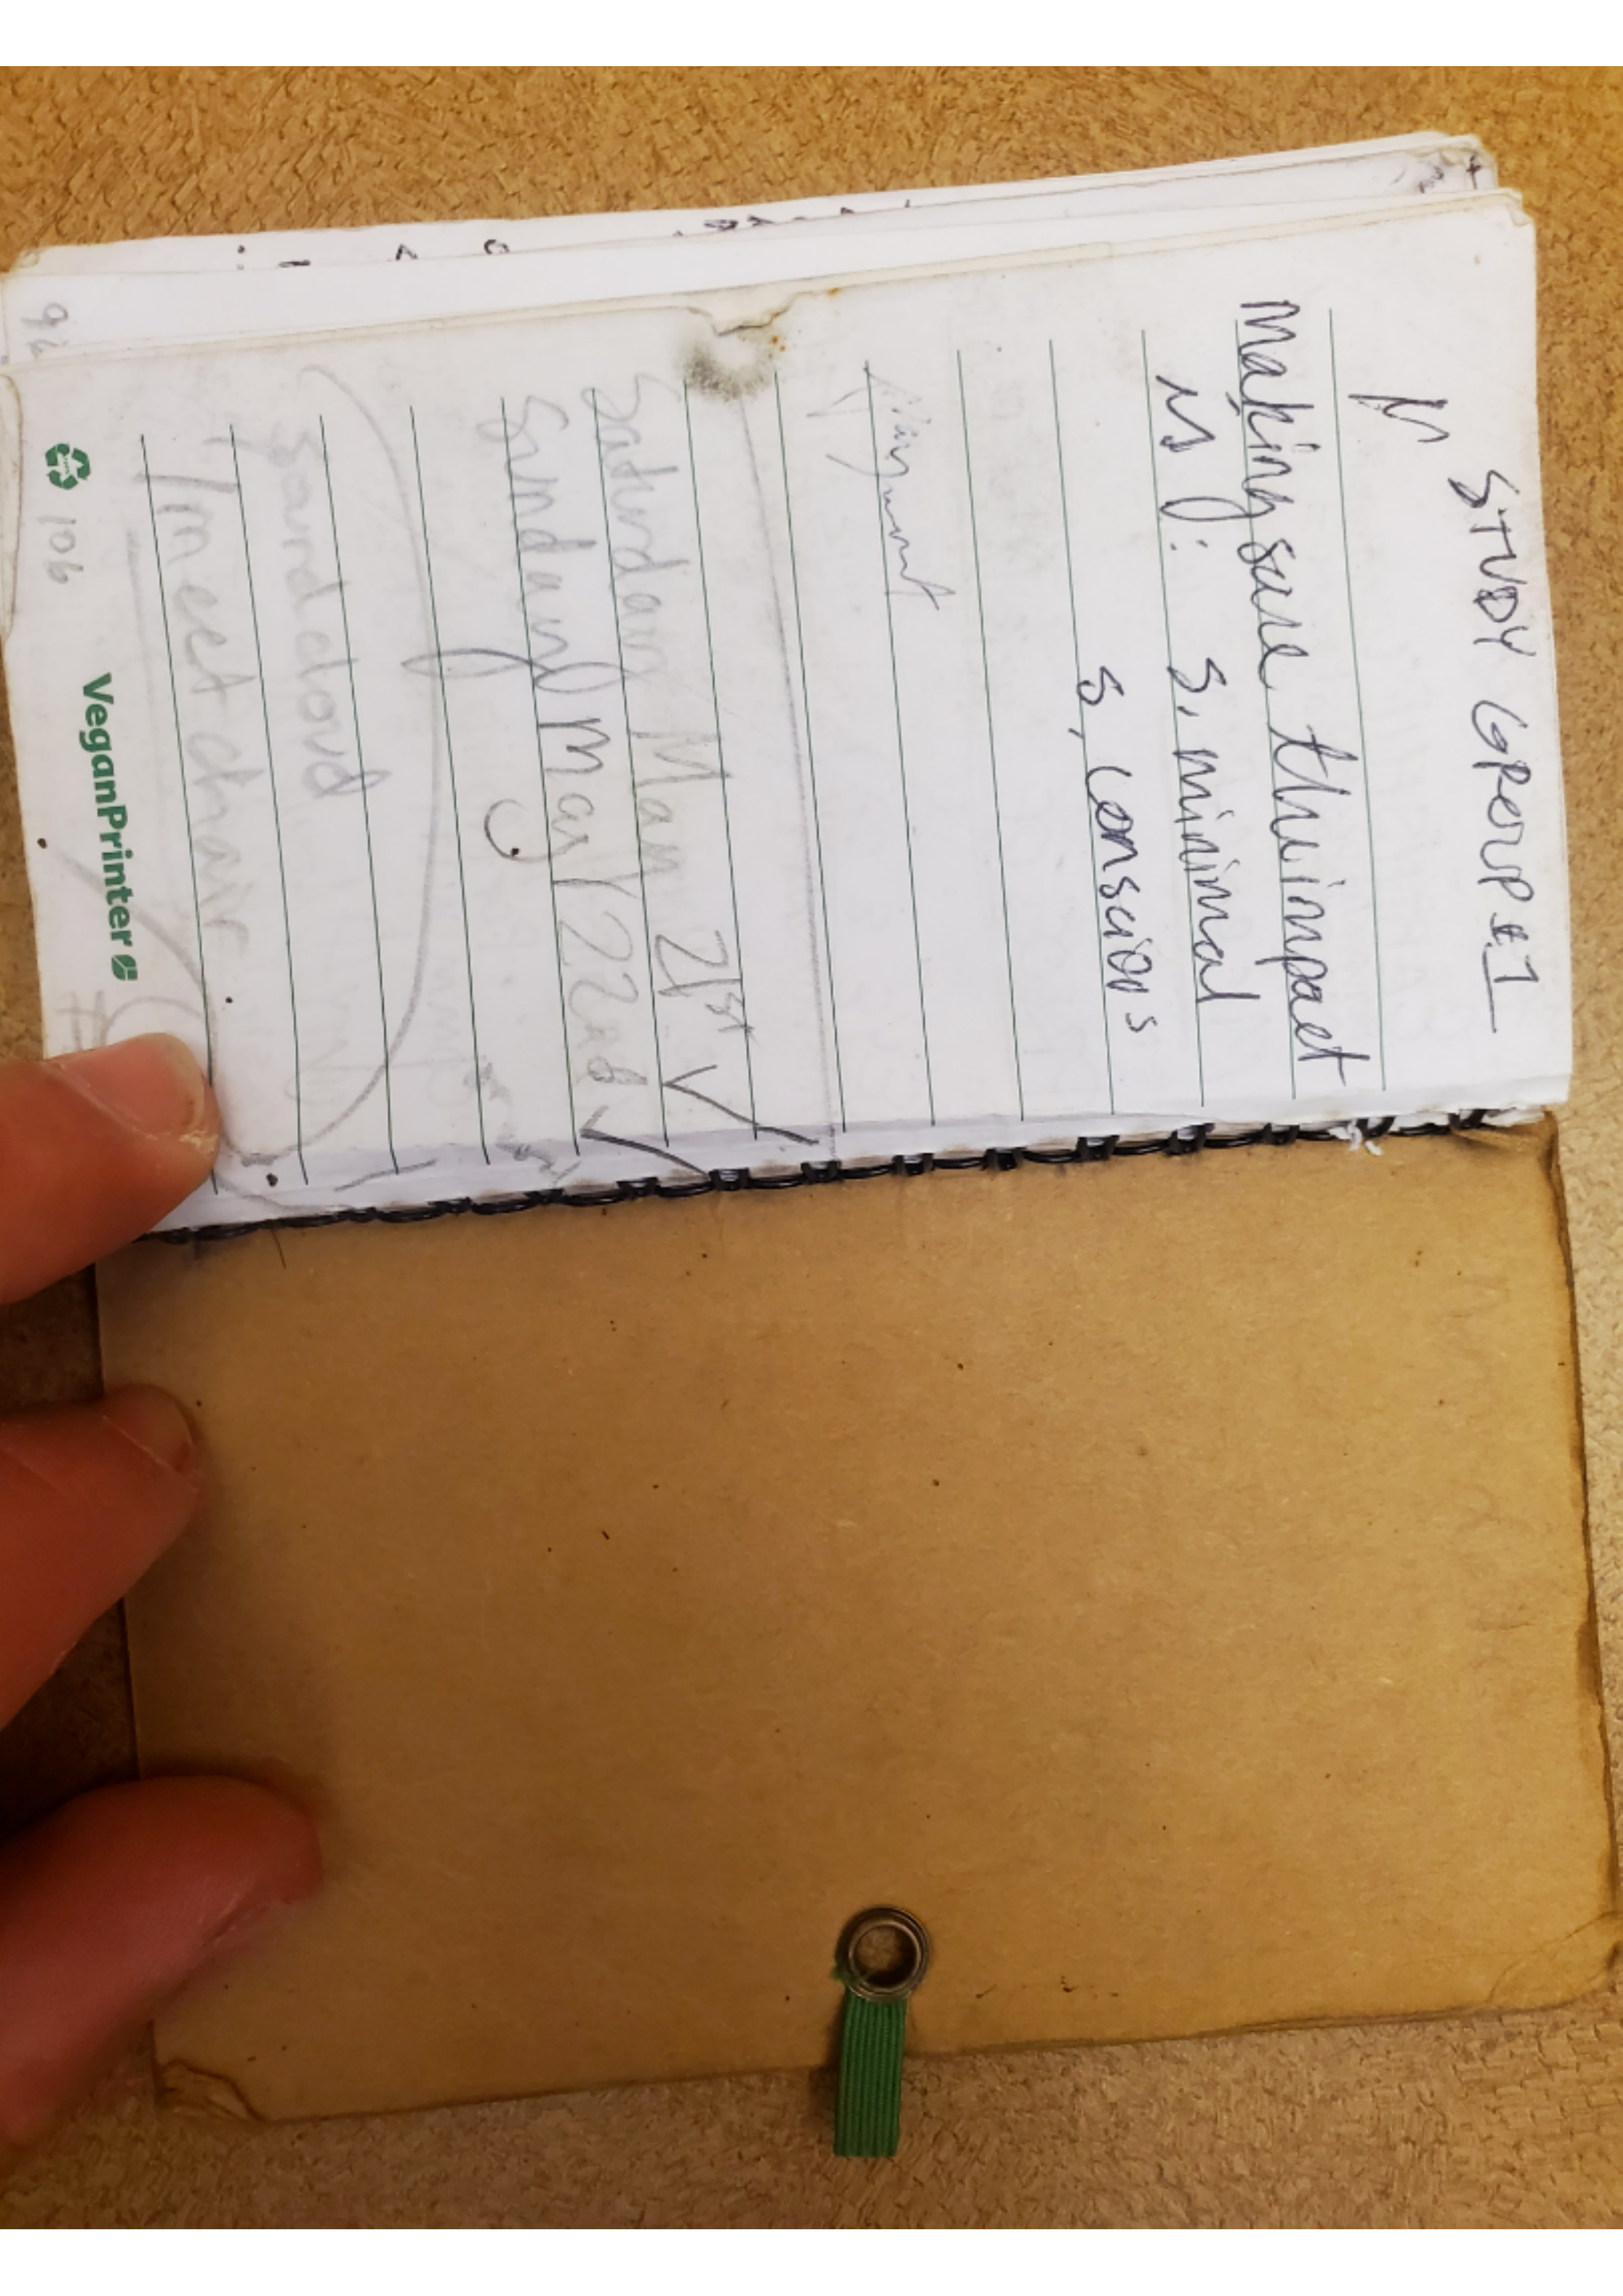 STUDY GROUP #1
making sure the impact
is
s, minimal
s, conscious
Saturday May 21st ✓
Sunday May 22nd ✓
Soundcloud
/meetchair
106
VeganPrinter